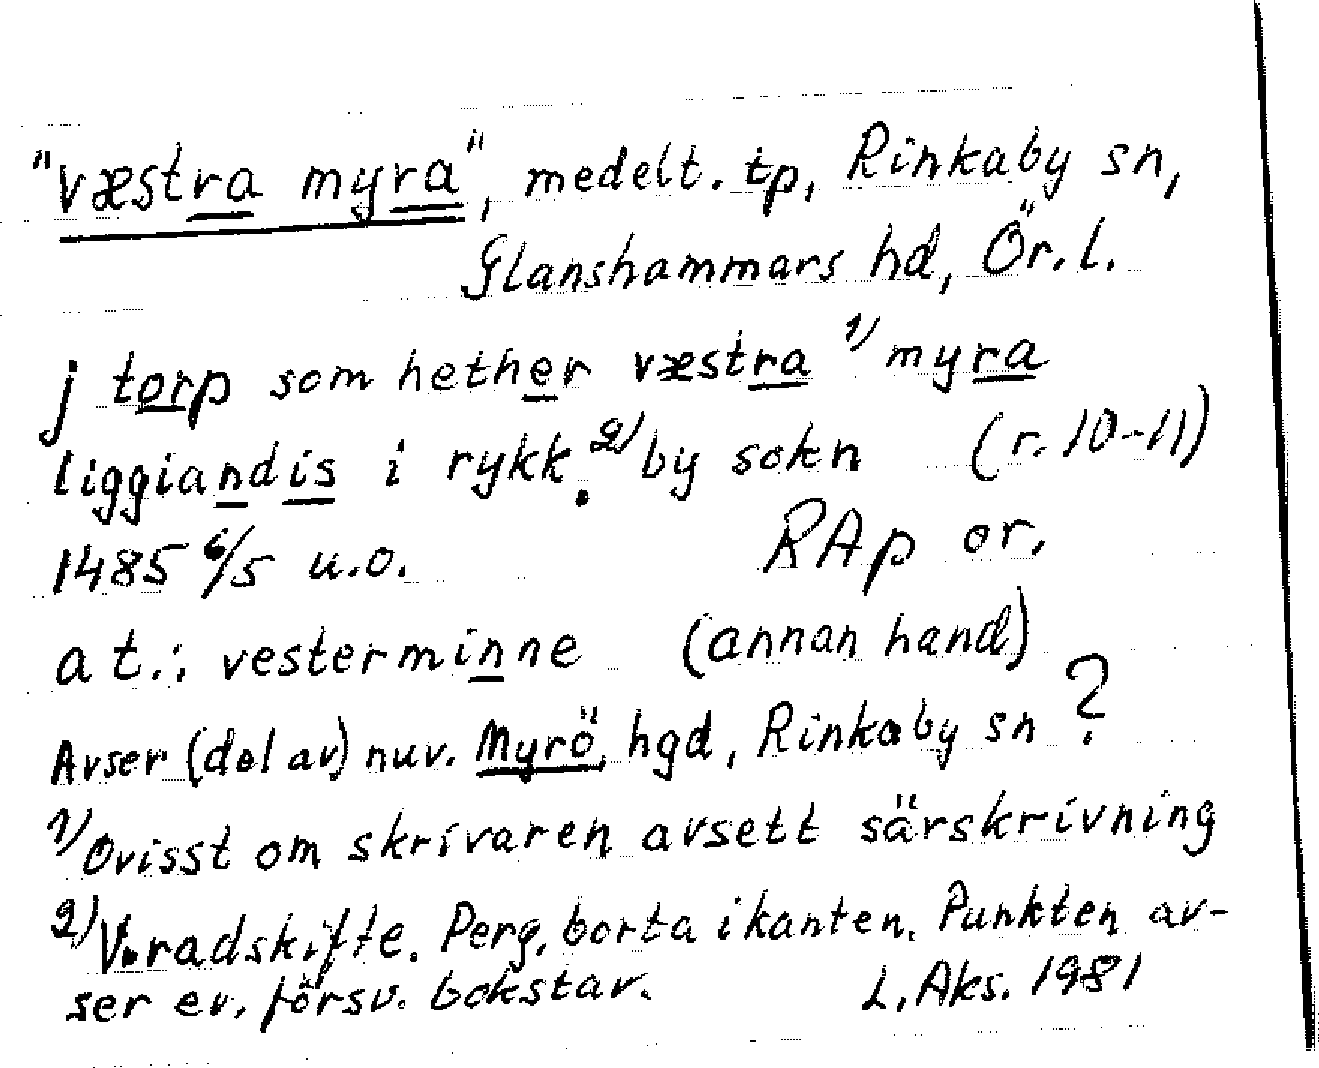 "væstra myra", medelt. tp, Rinkaby sn,
Glanshammars hd, Ör. l.
j torp som hether væstra 1) myra
liggiandis i rykk. 2) by sokn (r. 10-11)
1485 6/5 u.o. RAp or.
a t.: vesterminne (annan hand)
Avser (del av) nuv. Myrö, hgd, Rinkaby sn?
1) Ovisst om skrivaren avsett särskrivning
2) V. radskifte. Perg. borta i kanten. Punkten av-
ser ev. försv. bokstav. L. Aks. 1981